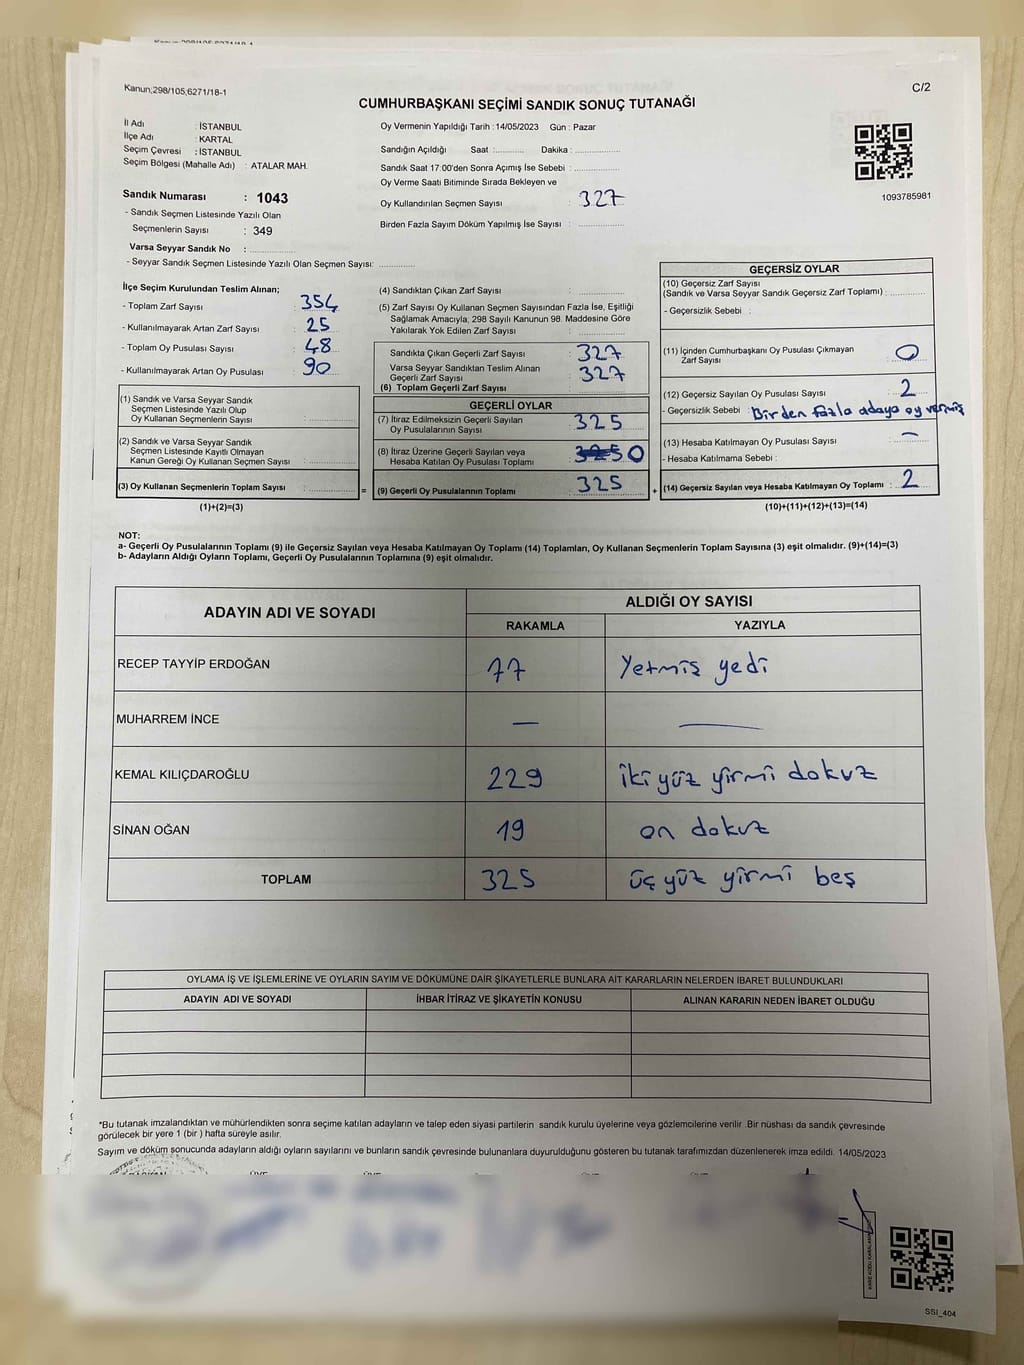 Kanun;298/105;6271/18-1
C/2
CUMHURBAŞKANI SEÇİMİ SANDIK SONUÇ TUTANAĞI
İl Adı : İSTANBUL
İlçe Adı : KARTAL
Seçim Çevresi : İSTANBUL
Seçim Bölgesi (Mahalle Adı) : ATALAR MAH.
Sandık Numarası : 1043
- Sandık Seçmen Listesinde Yazılı Olan
Seçmenlerin Sayısı : 349
Varsa Seyyar Sandık No : ..............
- Seyyar Sandık Seçmen Listesinde Yazılı Olan Seçmen Sayısı: ............
Oy Vermenin Yapıldığı Tarih : 14/05/2023 Gün : Pazar
Sandığın Açıldığı Saat :.......... Dakika : ..............
Sandık Saat 17:00'den Sonra Açımış İse Sebebi : ..............
Oy Verme Saati Bitiminde Sırada Bekleyen ve
Oy Kullandırılan Seçmen Sayısı : 327
Birden Fazla Sayım Döküm Yapılmış İse Sayısı : ..............
1093785981
İlçe Seçim Kurulundan Teslim Alınan;
- Toplam Zarf Sayısı : 354
- Kullanılmayarak Artan Zarf Sayısı : 25
- Toplam Oy Pusulası Sayısı : 48
- Kullanılmayarak Artan Oy Pusulası : 90
(1) Sandık ve Varsa Seyyar Sandık
Seçmen Listesinde Yazılı Olup
Oy Kullanan Seçmenlerin Sayısı : ..............
(2) Sandık ve Varsa Seyyar Sandık
Seçmen Listesinde Kayıtlı Olmayan
Kanun Gereği Oy Kullanan Seçmen Sayısı : ..............
(3) Oy Kullanan Seçmenlerin Toplam Sayısı : ..............
(1)+(2)=(3)
(4) Sandıktan Çıkan Zarf Sayısı : ..............
(5) Zarf Sayısı Oy Kullanan Seçmen Sayısından Fazla İse, Eşitliği
Sağlamak Amacıyla, 298 Sayılı Kanunun 98. Maddesine Göre
Yakılarak Yok Edilen Zarf Sayısı : ..............
Sandıkta Çıkan Geçerli Zarf Sayısı : 327
Varsa Seyyar Sandıktan Teslim Alınan
Geçerli Zarf Sayısı : 327
(6) Toplam Geçerli Zarf Sayısı
GEÇERLİ OYLAR
(7) İtiraz Edilmeksizin Geçerli Sayılan
Oy Pusulalarının Sayısı : 325
(8) İtiraz Üzerine Geçerli Sayılan veya
Hesaba Katılan Oy Pusulası Toplamı : 325 0
= (9) Geçerli Oy Pusulalarının Toplamı : 325
GEÇERSİZ OYLAR
(10) Geçersiz Zarf Sayısı
(Sandık ve Varsa Seyyar Sandık Geçersiz Zarf Toplamı) : ..........
- Geçersizlik Sebebi :
(11) İçinden Cumhurbaşkanı Oy Pusulası Çıkmayan
Zarf Sayısı : 0
(12) Geçersiz Sayılan Oy Pusulası Sayısı : 2
- Geçersizlik Sebebi : Birden fazla adaya oy vermiş
(13) Hesaba Katılmayan Oy Pusulası Sayısı : –
- Hesaba Katılmama Sebebi :
+ (14) Geçersiz Sayılan veya Hesaba Katılmayan Oy Toplamı : 2
(10)+(11)+(12)+(13)=(14)
NOT:
a- Geçerli Oy Pusulalarının Toplamı (9) ile Geçersiz Sayılan veya Hesaba Katılmayan Oy Toplamı (14) Toplamları, Oy Kullanan Seçmenlerin Toplam Sayısına (3) eşit olmalıdır. (9)+(14)=(3)
b- Adayların Aldığı Oyların Toplamı, Geçerli Oy Pusulalarının Toplamına (9) eşit olmalıdır.
ADAYIN ADI VE SOYADI
ALDIĞI OY SAYISI
RAKAMLA YAZIYLA
RECEP TAYYİP ERDOĞAN 77 Yetmiş yedi
MUHARREM İNCE — —
KEMAL KILIÇDAROĞLU 229 iki yüz yirmi dokuz
SİNAN OĞAN 19 on dokuz
TOPLAM 325 üç yüz yirmi beş
OYLAMA İŞ VE İŞLEMLERİNE VE OYLARIN SAYIM VE DÖKÜMÜNE DAİR ŞİKAYETLERLE BUNLARA AİT KARARLARIN NELERDEN İBARET BULUNDUKLARI
ADAYIN ADI VE SOYADI İHBAR İTİRAZ VE ŞİKAYETİN KONUSU ALINAN KARARIN NEDEN İBARET OLDUĞU
*Bu tutanak imzalandıktan ve mühürlendikten sonra seçime katılan adayların ve talep eden siyasi partilerin sandık kurulu üyelerine veya gözlemcilerine verilir .Bir nüshası da sandık çevresinde
görülecek bir yere 1 (bir ) hafta süreyle asılır.
Sayım ve döküm sonucunda adayların aldığı oyların sayılarını ve bunların sandık çevresinde bulunanlara duyurulduğunu gösteren bu tutanak tarafımızdan düzenlenerek imza edildi. 14/05/2023
SSI_404